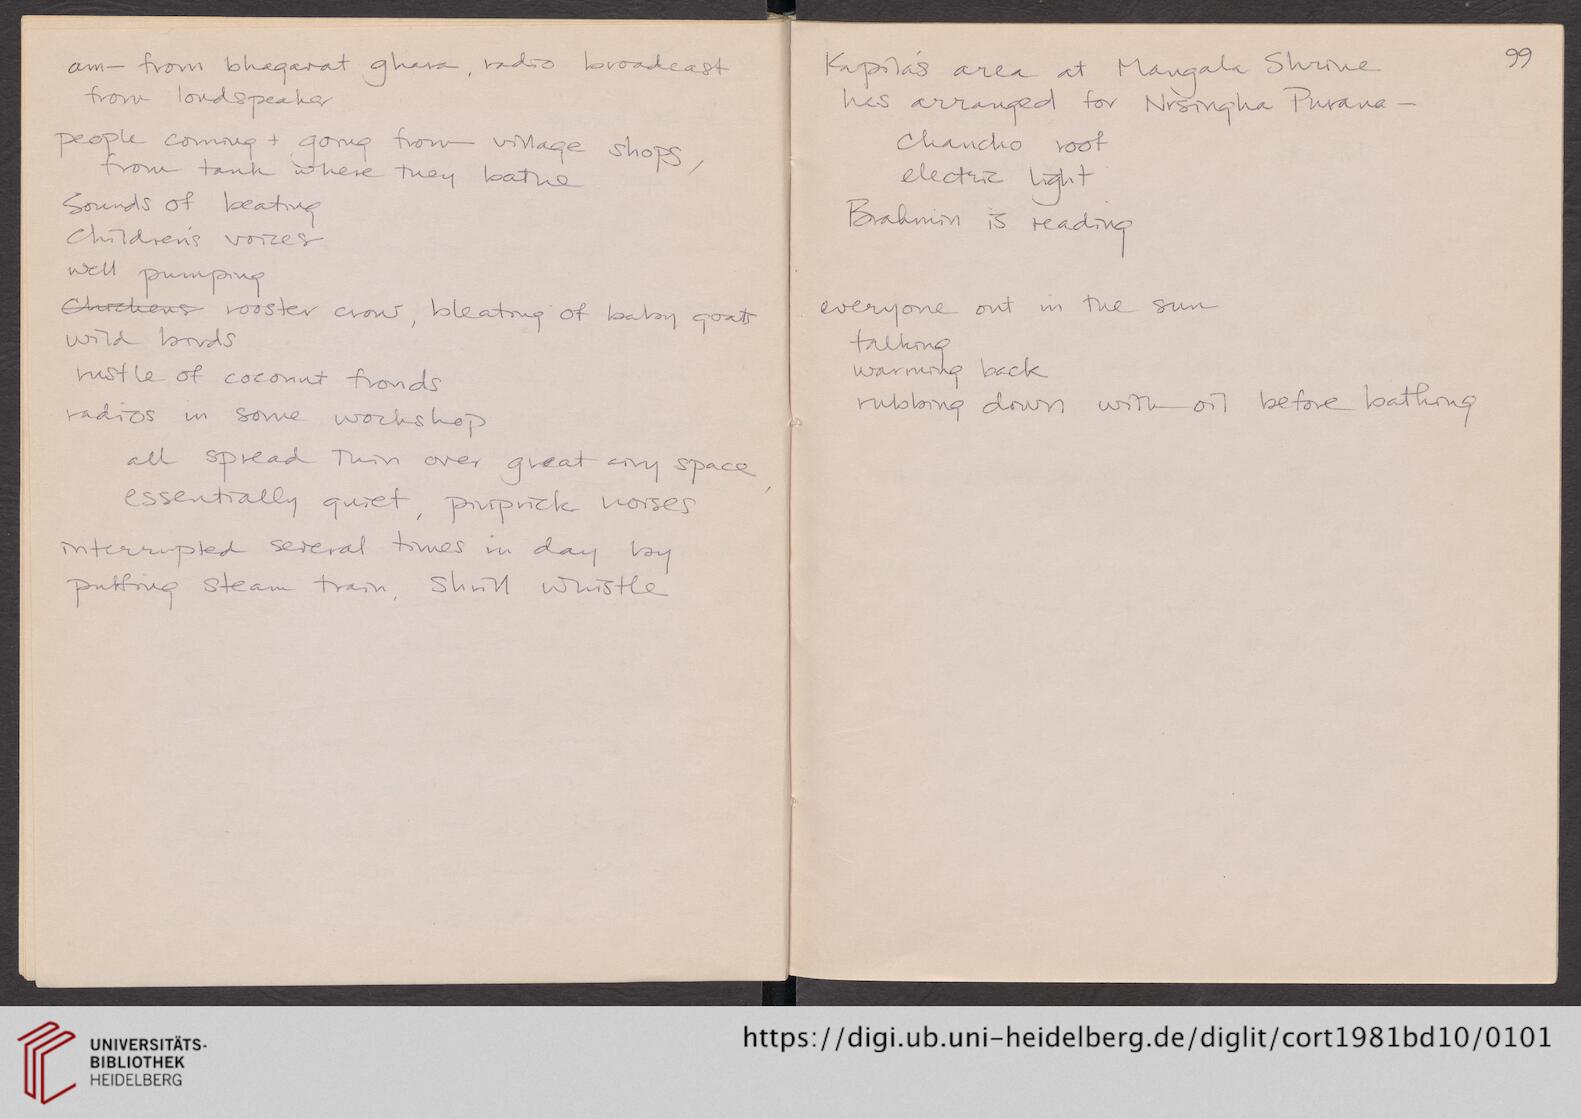 am— from bhagavat ghara, radio broadcast
from loudspeaker
people coming + going from village shops,
from tank where they bathe
Sounds of beating
Children's voices
well pumping
Chickens rooster crow, bleating of baby goats
wild birds
rustle of coconut fronds
radios in some workshop
all spread thin over great airy space,
essentially quiet, pinprick noises
interrupted several times in day by
puffing steam train, shrill whistle
99
Kapila's area at Mangala Shrine
has arranged for Nrsingha Purana —
Chancho roof
electric light
Brahmin is reading
everyone out in the sun
talking
warming back
rubbing down with oil before bathing
UNIVERSITÄTS-
BIBLIOTHEK
HEIDELBERG
https://digi.ub.uni-heidelberg.de/diglit/cort1981bd10/0101